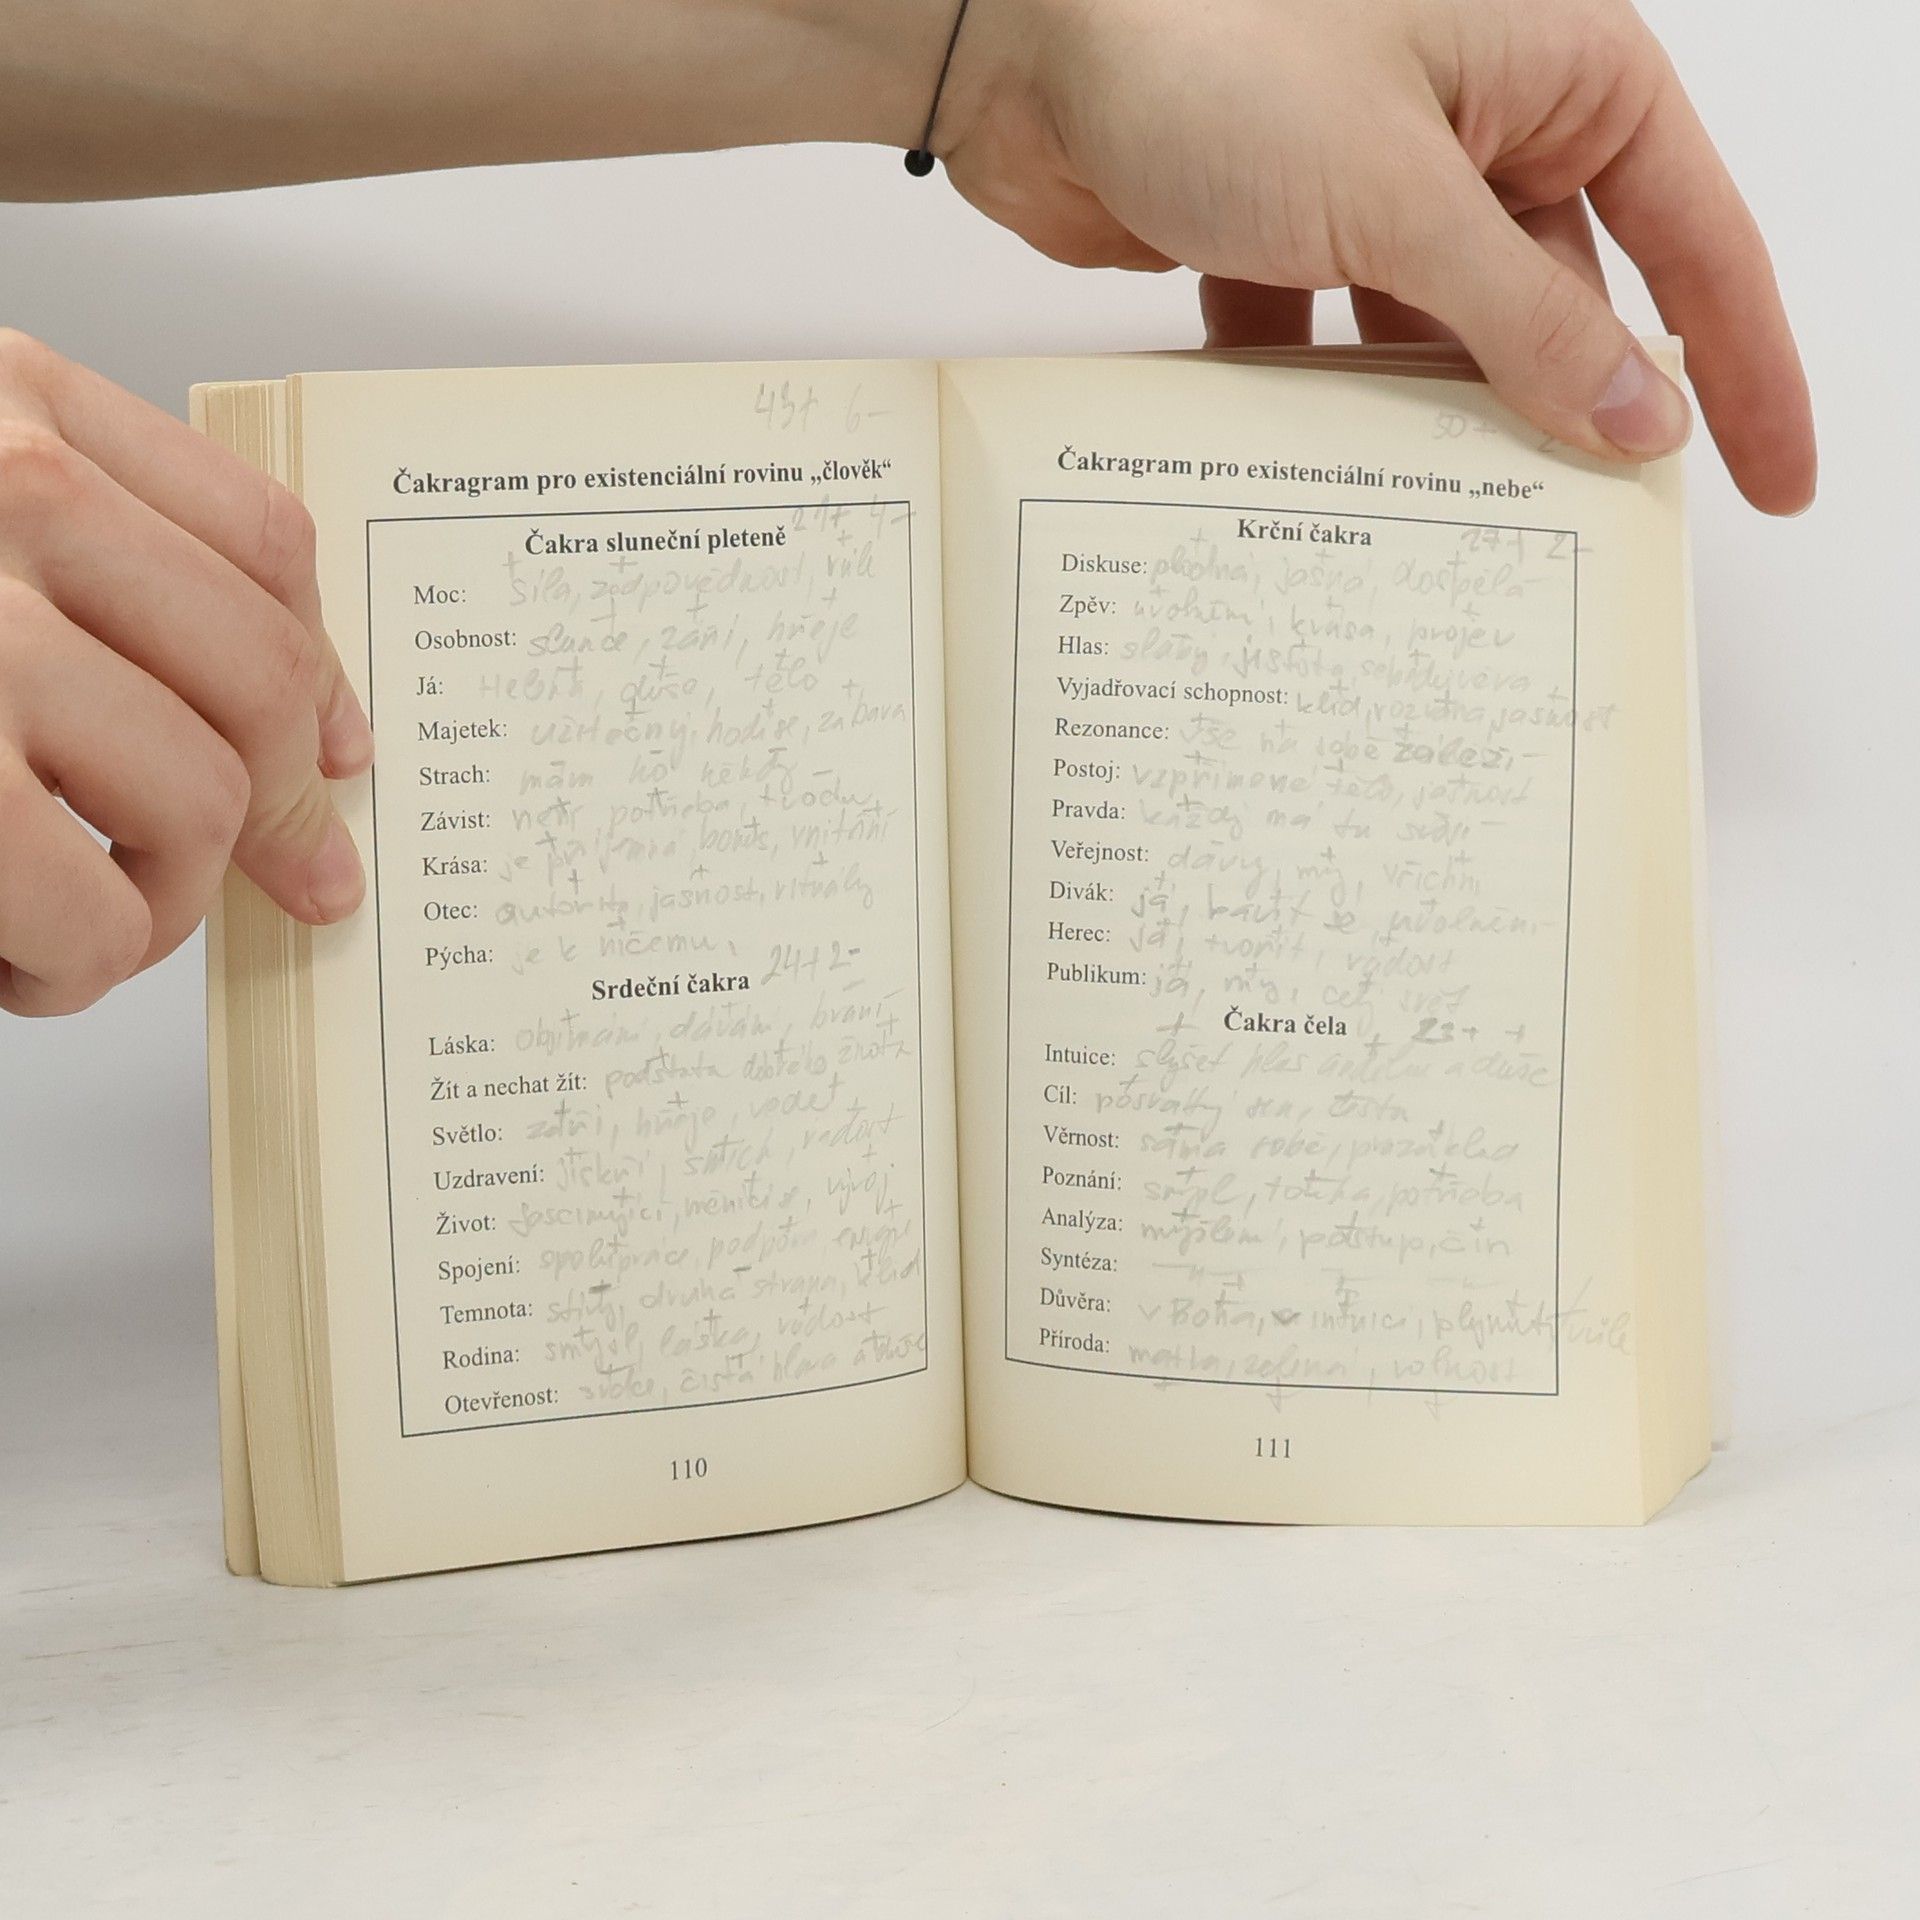 43+ 6-
Čakragram pro existenciální rovinu „člověk“
21+ 4-
Čakra sluneční pleteně
Moc: síla, zodpovědnost, vůle
Osobnost: slunce, září, hřeje
Já: duše, tělo
Majetek: užitečný, hodí se, zábava
Strach: mám ho někdy
Závist: není potřeba,
Krása: je příjemná, bonus, vnitřní
Otec: autorita, jasnost, rituály
Pýcha: je k ničemu,
Srdeční čakra 24+ 2-
Láska: objímání, dávání, braní
Žít a nechat žít: podstata dobrého života
Světlo: září, hřeje,
Uzdravení: smích, radost
Život: fascinující, měnící se, vývoj
Spojení: spolupráce, podpora,
Temnota: stíny, druhá strana, klid
Rodina: smysl, láska, radost
Otevřenost: srdce, čistá hlava a
110
50+ 2
Čakragram pro existenciální rovinu „nebe“
Krční čakra 27+ 2-
Diskuse: plodná, jasná, dospělá
Zpěv: uvolnění, krása, projev
Hlas: slabý, jistota, sebedůvěra
Vyjadřovací schopnost: klid, rozvaha, jasnost
Rezonance: vše na sobě záleží
Postoj: vzpřímené tělo, jasnost
Pravda: každý má tu svou
Veřejnost: davy, my, všichni
Divák: já, bavit se, uvolnění
Herec: já, tvořit, radost
Publikum: já, my, celý svět
Čakra čela 23+
Intuice: slyšet hlas andělů a duše
Cíl: posvátný sen, cesta
Věrnost: sama sobě,
Poznání: smysl, touha, potřeba
Analýza: myšlení, postup, čin
Syntéza:
Důvěra: v Boha, v intuici, plynutí, vůle
Příroda: matka, zelená, volnost
111